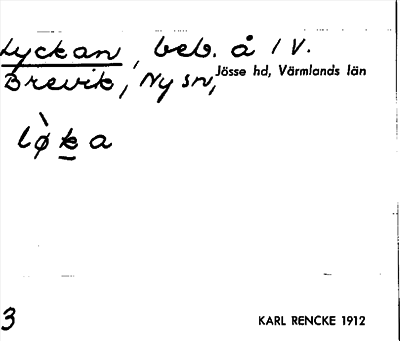 Lyckan, beb. å 1 V.
Brevik, Ny sn, Jösse hd, Värmlands län
lø̀ḵa
3
KARL RENCKE 1912